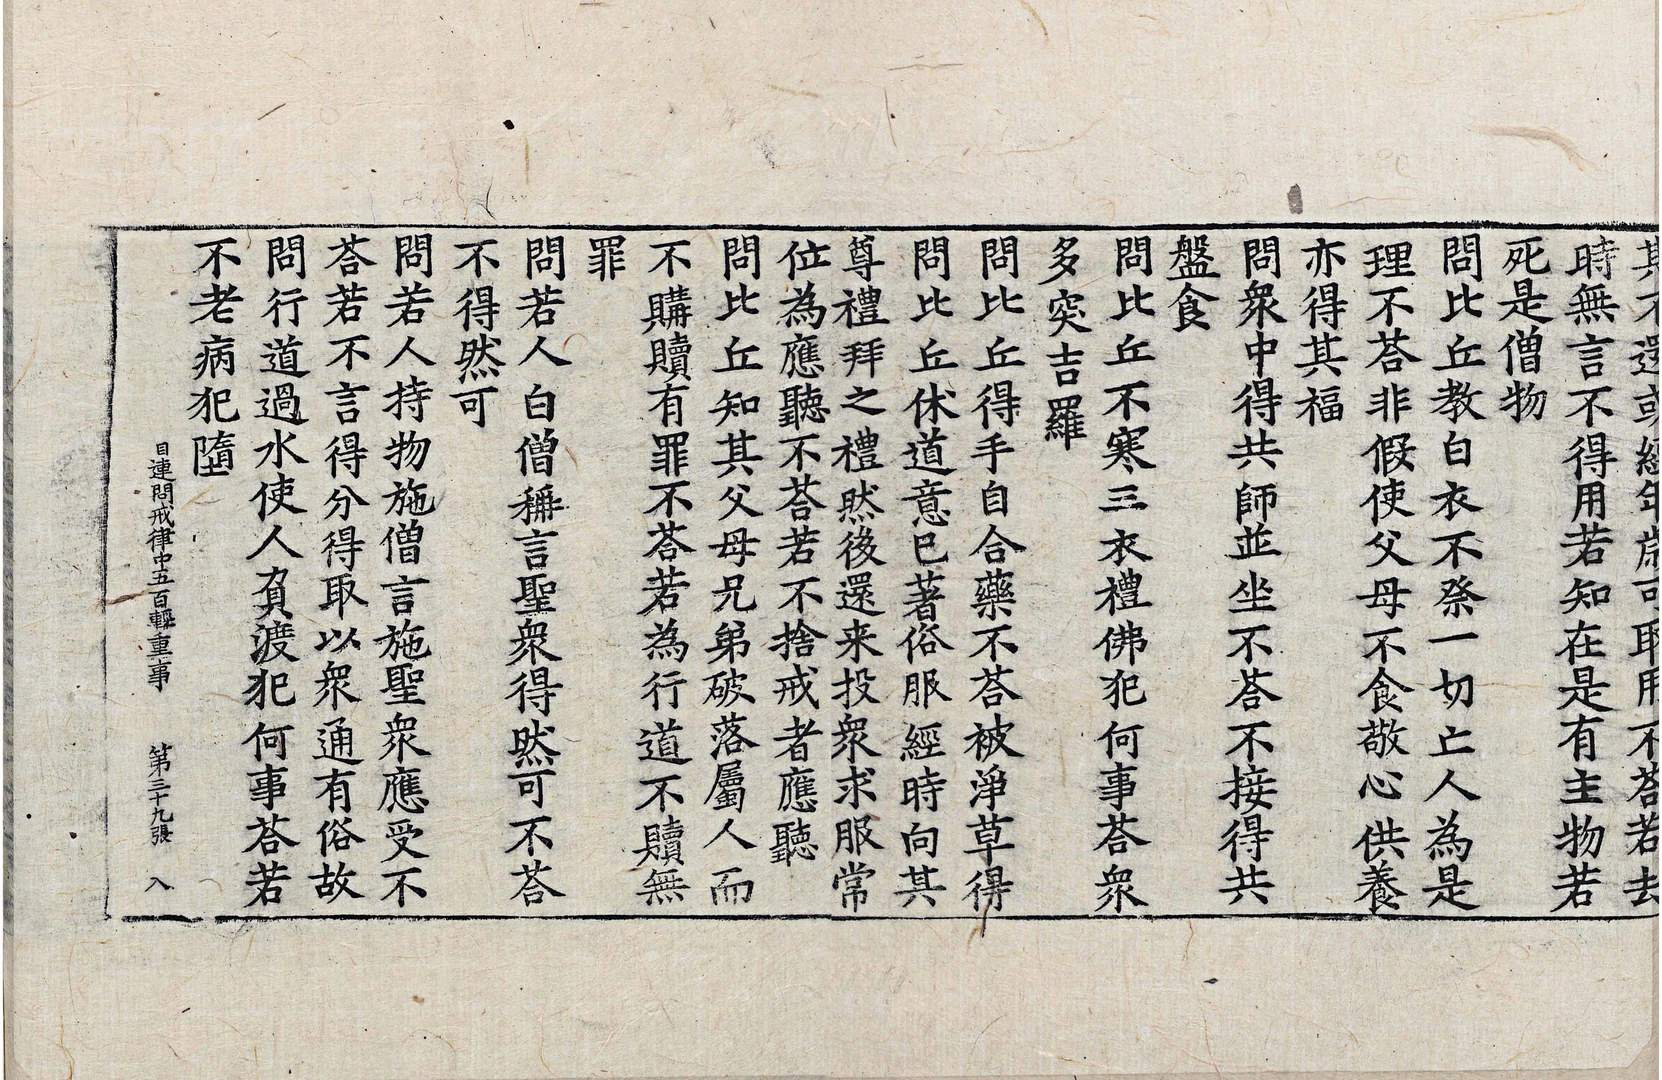 其不還或經年歲可取用不荅若去
時無言不得用若知在是有主物若
死是僧物
問比丘教白衣不祭一切亡人為是
理不荅非假使父母不食敬心供養
亦得其福
問衆中得共師並坐不荅不接得共
盤食
問比丘不寒三衣禮佛犯何事荅衆
多突吉羅
問比丘得手自合藥不荅被淨草得
問比丘休道意已著俗服經時向其
尊禮拜之禮然後還来投衆求服常
位為應聽不荅若不捨戒者應聽
問比丘知其父母兄弟破落屬人而
不購贖有罪不荅若為行道不贖無
罪
問若人白僧稱言聖衆得然可不荅
不得然可
問若人持物施僧言施聖衆應受不
荅若不言得分得取以衆通有俗故
問行道過水使人負渡犯何事荅若
不老病犯墮
目連問戒律中五百輕重事 第三十九張 入